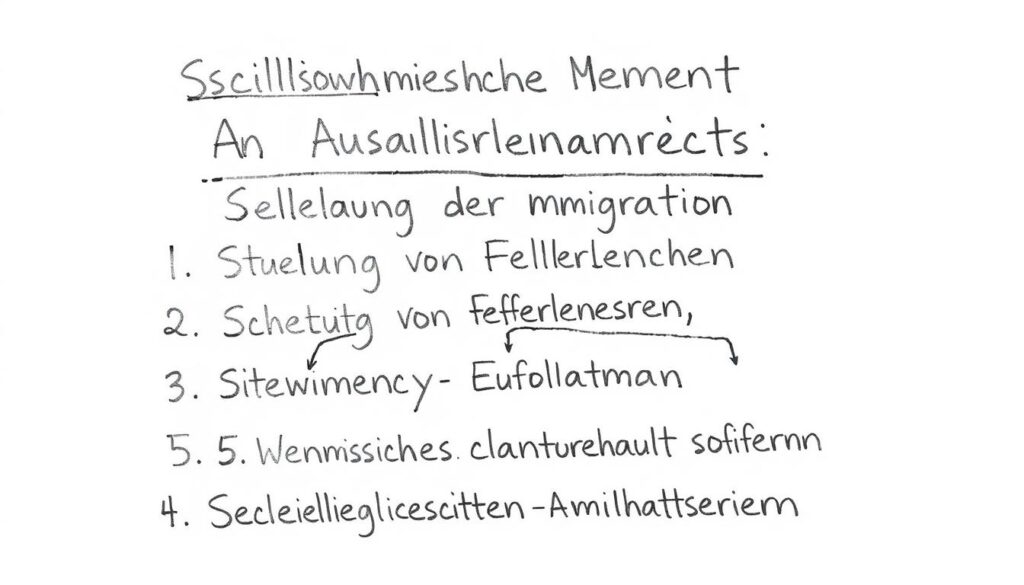 Sscilllsowhmieshche Mement
An Ausaillisrleinamrècts:
Sellelaung der mmigration
1. Stuelung von Felllerlenchen
2. Schetutg von fefferlenesren,
3. Sitewimency- Eufollatman
5. 5. Wenmissiches. clanturehault sofifernn
4. Secleiellieglicescitten-Amilhattseriem